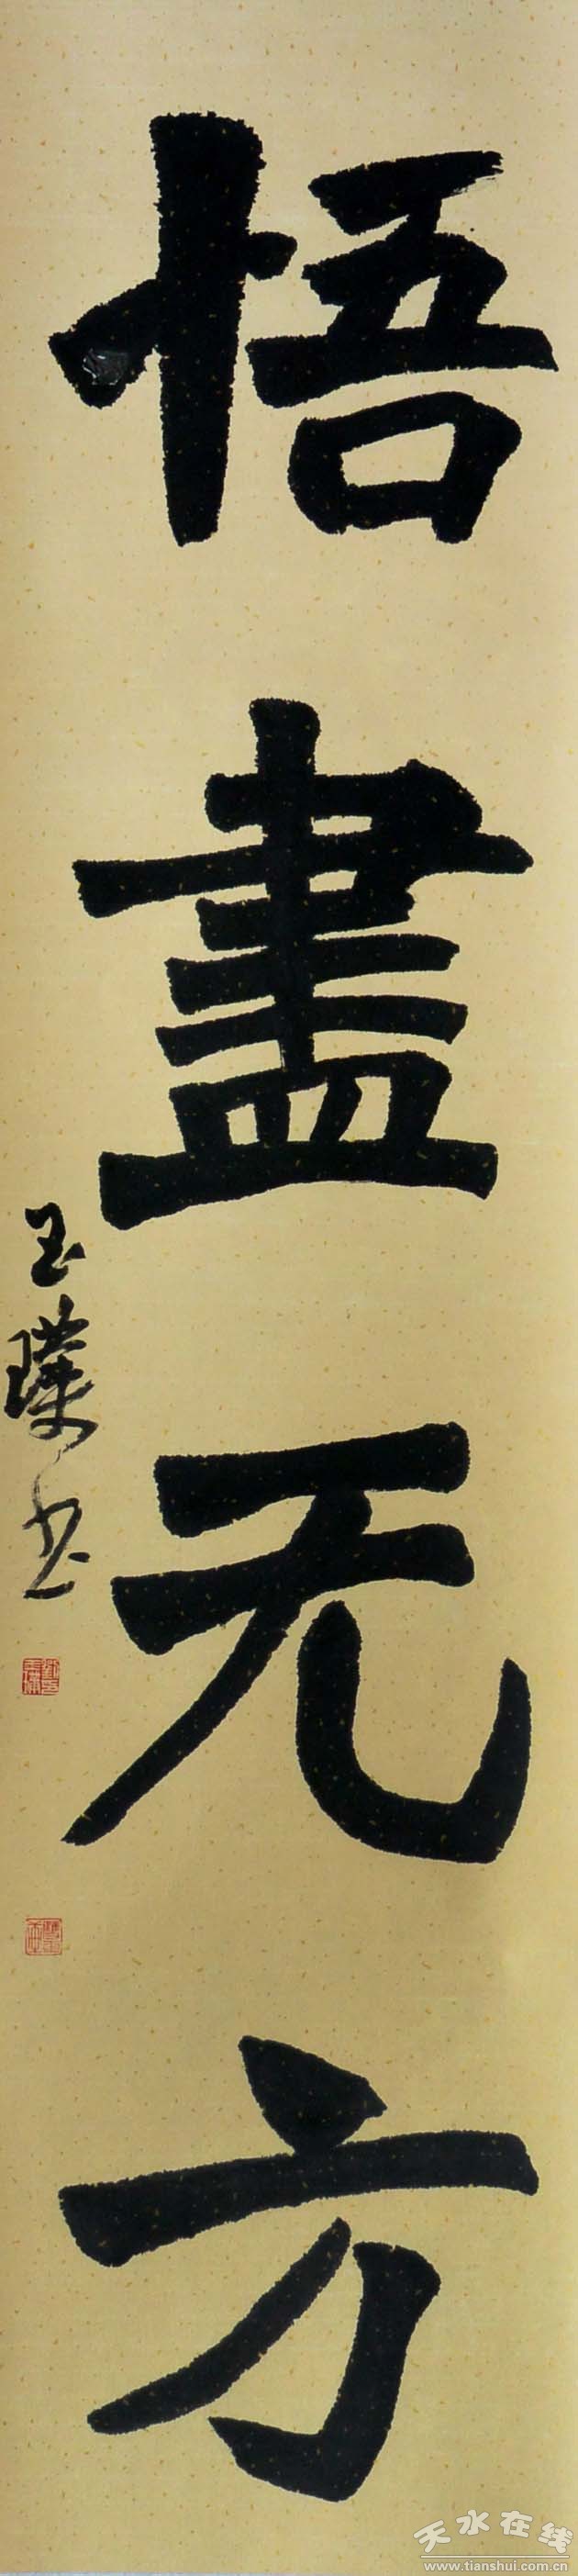 悟盡无方
玉璞书
天水在线
www.tianshui.com.cn